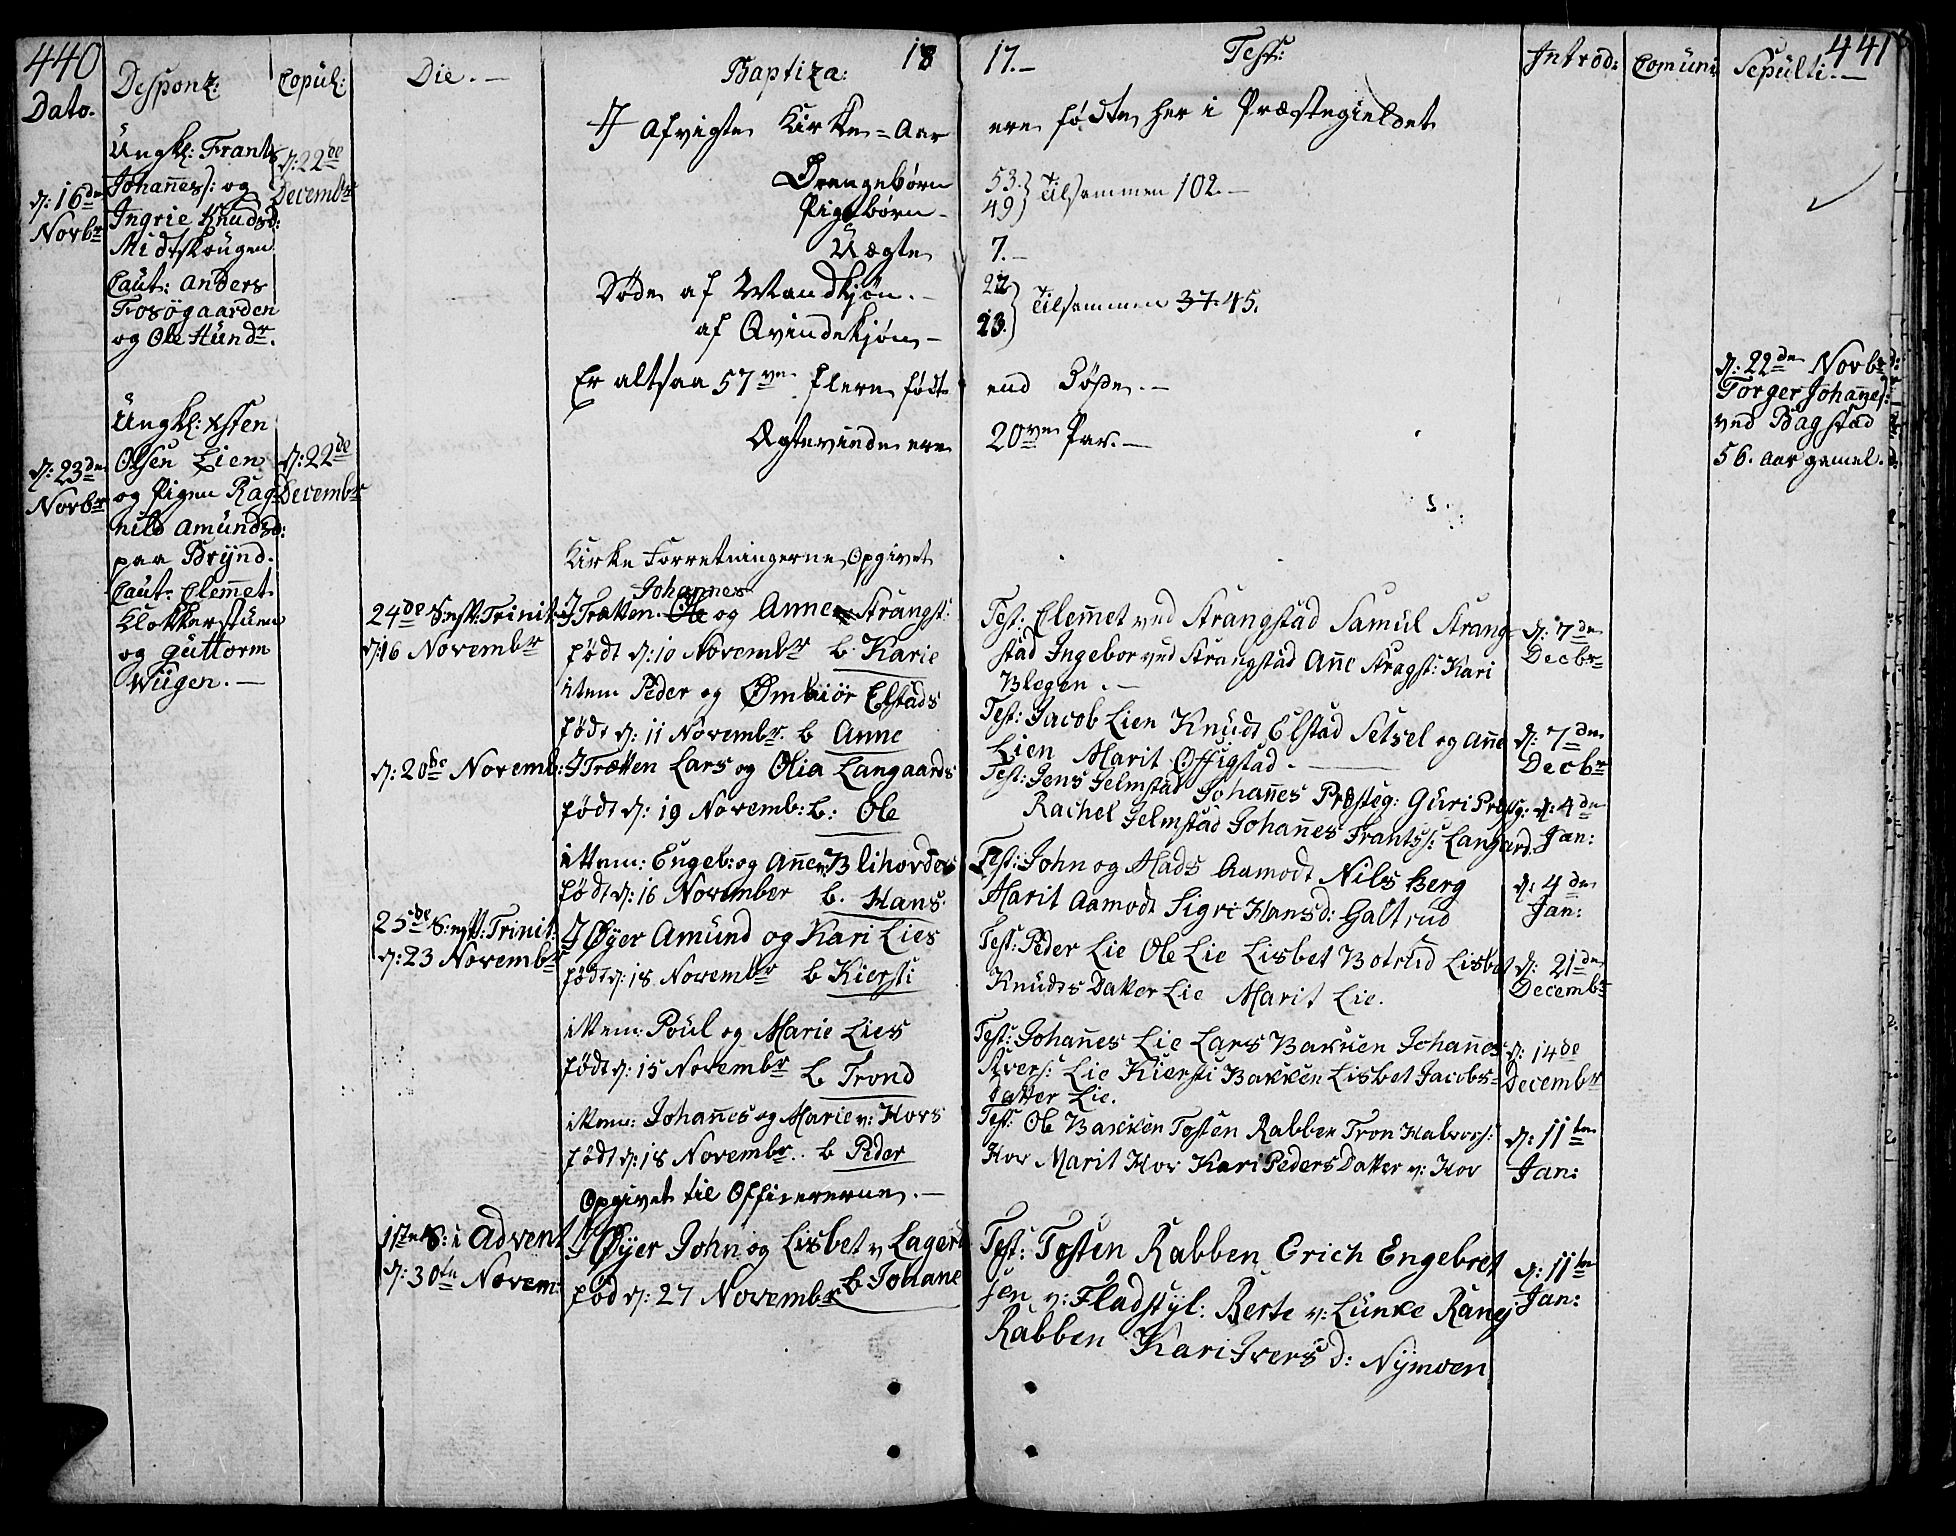 440
18
17.
441
Dato.
Desponz:
Copul:
Die.
Baptiza:
Test:
Introd:
Comuni
Sepulti.
d: 16de
Novbr
Ungkl: Frants
Johañess: og
Ingrie Knudsd:
Midtskougen
Caut: Anders
Fosøgaarden
og Ole Hundr.
d: 22de
Decembr
d: 23de
Novbr
Ungkl: Xsten
Olsen Lien
og Pigen Rag
nild Amundsd:
paa Brynd.
Caut: Clemet
Klokkerstuen
og Guttorm
Wugen.
d: 22de
Decembr
I Afvigte Kirke-Aar ere fødte her i Præstegieldet
Drengebørn 53.
Pigebørn 49 Tilsammen 102.
Uægte 7.
Døde af Mandkjøn. 22
af Qvindekjøn 23. Tilsammen 37. 45.
Er altsaa 57ve flere fødte end Døde.
Ægteviede ere 20ve Par.
Kirke Forretningerne Opgivet
24de S: eft: Trinit:
d: 16 Novembr
Johannes
I Trætten Ole og Anne Strangst:
født d: 10 Novembr b. Karie
Test: Clemet ved Strangstad Samul Strang
stad Ingebor ved Strangstad Añe Stragst: Kari
Blegen.
d: 7de
Decbr
item Peder og Ømbiør Elstads
født d: 11 Novembr. b Anne
Test: Jacob Lien Knudt Elstad Setsel og Añe
Lien Marit Offigstad.
d: 7de
Decbr
d: 20de Novemb:
I Trætten Lars og Olia Langaards
født d: 19 Novemb: b: Ole
Test: Jens Jelmstad Johañes Prøsteg: Guri Prøstg:
Rachel Jelmstad Johañes Frantss: Langard.
d: 4de
Jan:
ittem: Engeb: og Añe v: Blihovdes
født d: 16 November b. Hans.
Test: John og Mads Aamodt Nils Berg
Marit Aamodt Sigri Hansd: Galtrud
d: 4de
Jan:
25de S: eft: Trinit:
d: 23 Novembr
I Øyer Amund og Kari Lies
født d: 18 Novembr b Kiersti
Test: Peder Lie Ole Lie Lisbet Botrud Lisbet
Knudts Datter Lie Marit Lie.
d: 21de
Decembr
ittem: Poul og Marie Lies
født d: 15 Novembr b Trond
Test: Johañes Lie Lars Bakken Johañes
Ivers: Lie Kiersti Bakken Lisbet Jacobs-
datter Lie.
d: 14de
Decembr
ittem: Johañes og Marie v: Hovs
født d: 18 Novembr. b Peder
Test: Ole Bakken Tosten Rabben Tron Halvors:
Hov Marit Hov Kari Peders Datter v: Hov
d: 11te
Jan:
Opgivet til Officererne.
1te S: i Advent
d: 30te Novem:
I Øyer John og Lisbet v Lager
fød d: 27 Novembr b Johane
Test: Tosten Rabben Erich Engebret
sen v: Fladstyl: Berte v: Lunke Raney
Rabben Kari Ivers d: Nymoen
d: 11te
Jan:
d: 22de Novbr
Torger Johañes:
ved Bagstad
56. Aar gamel.